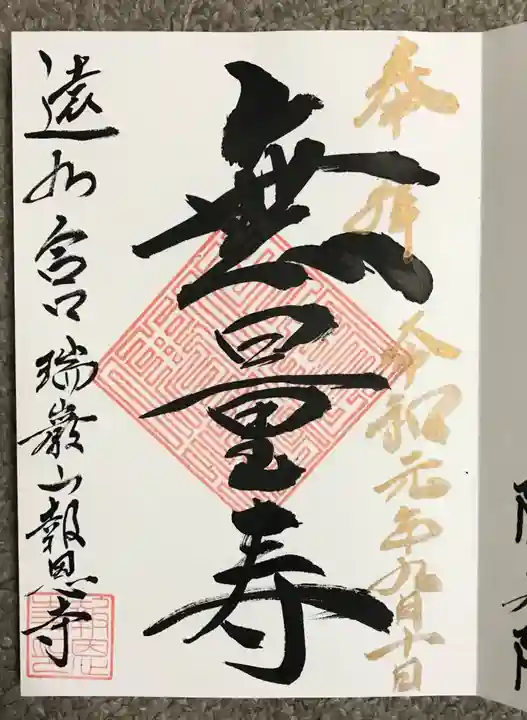 奉拝
令和元年九月十日
無量寿
遠州宮口瑞巌山報恩寺